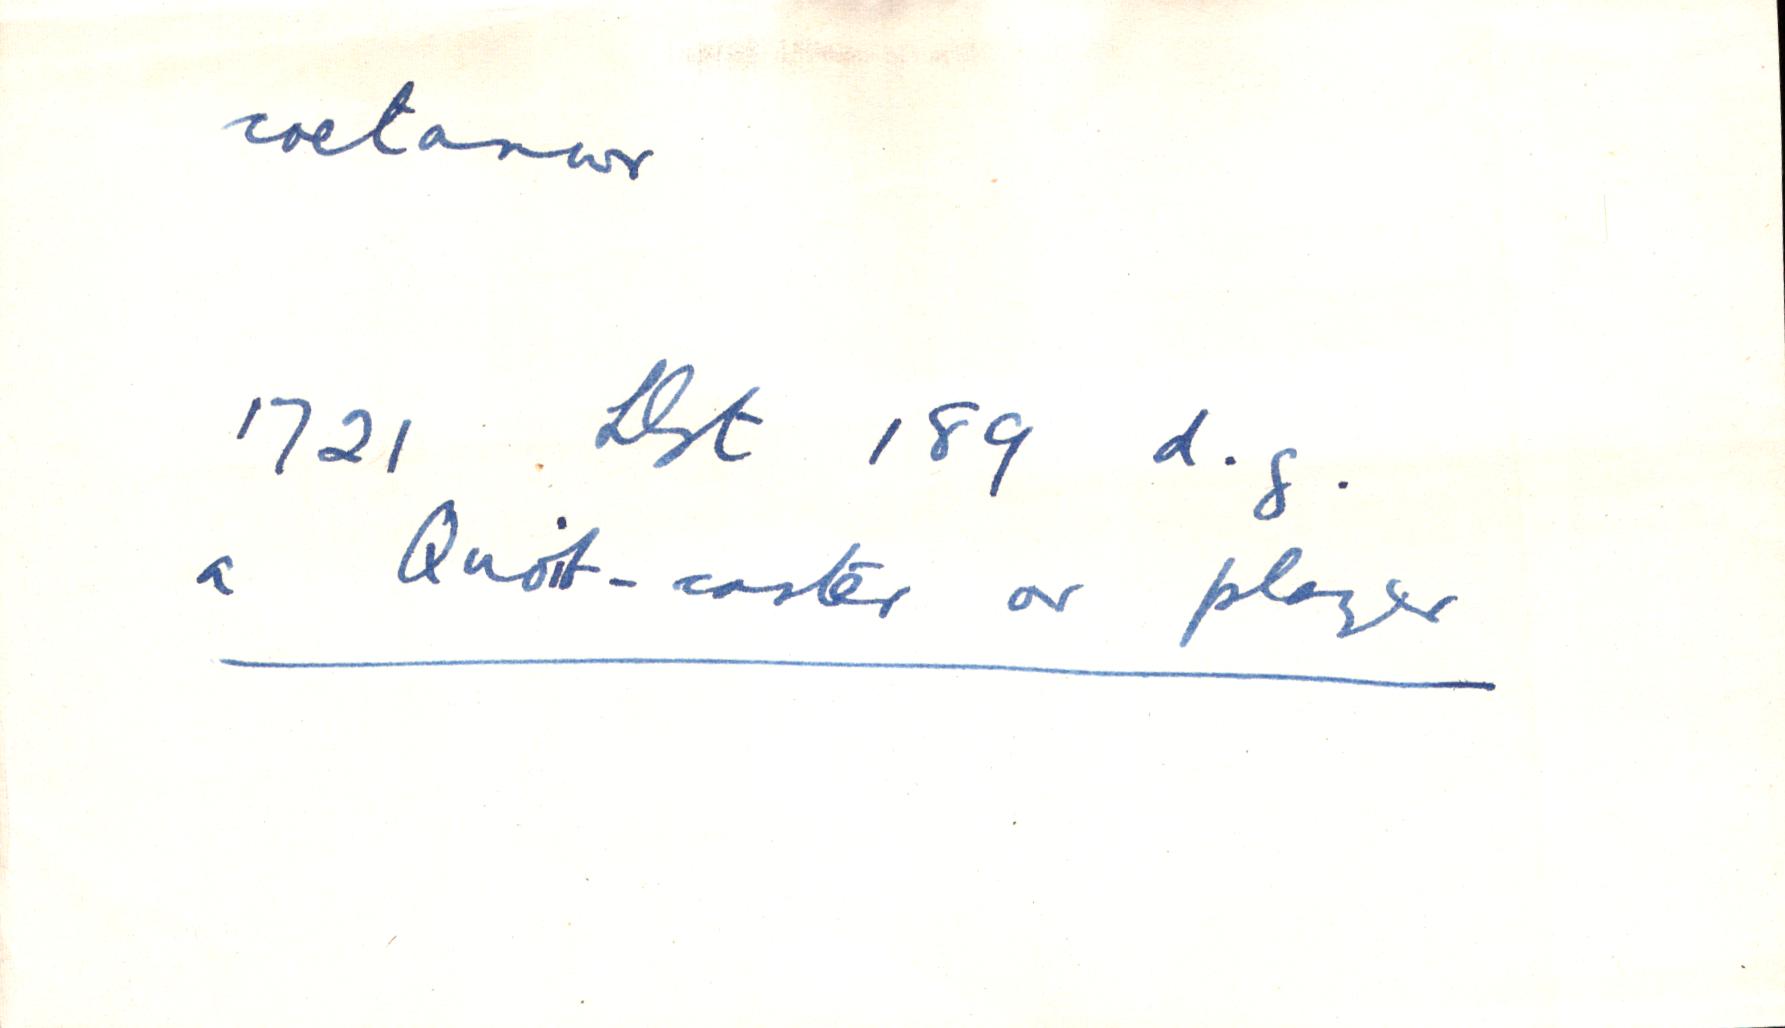 coetanwr
1721 Llst 189 d.g.
a Quoit-caster or player